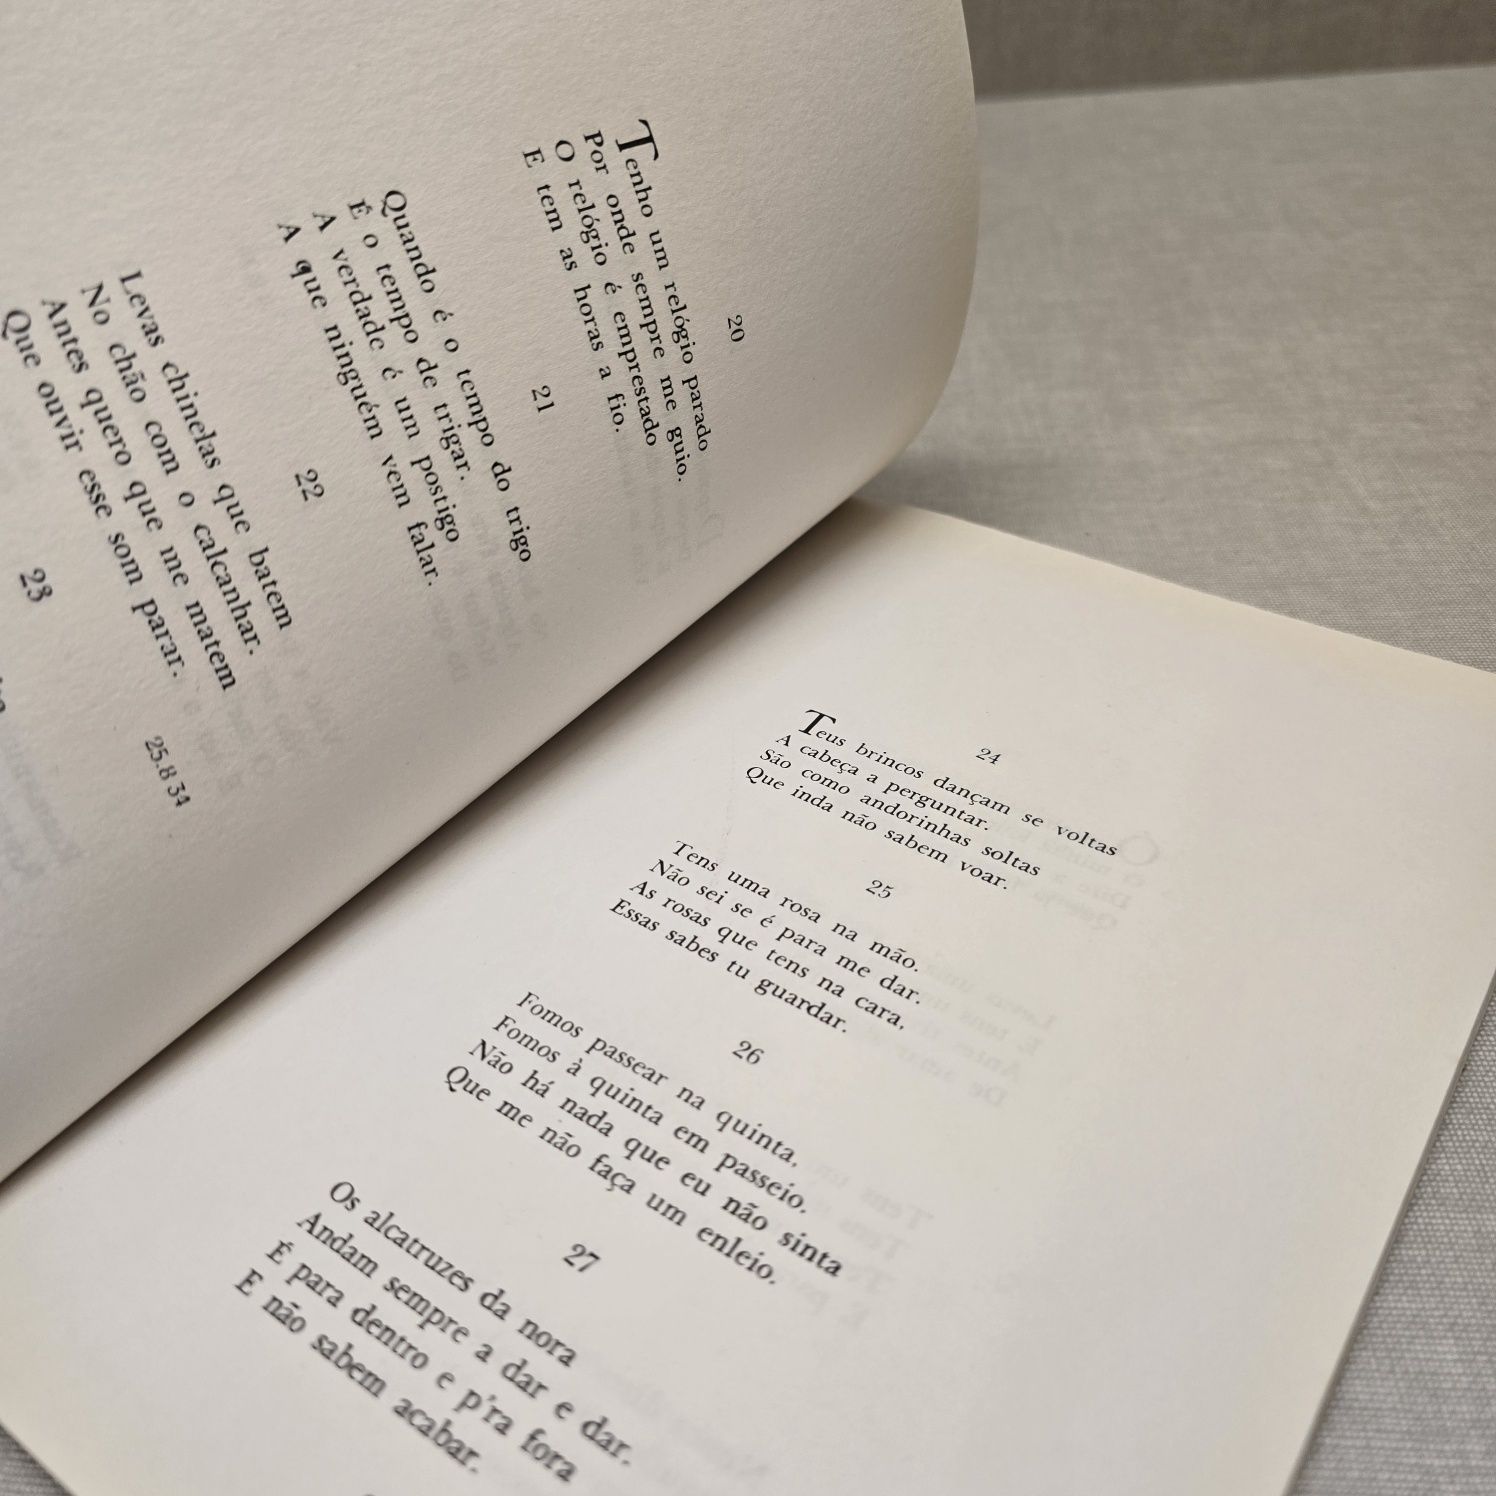 20
Tenho um relógio parado
Por onde sempre me guio.
O relógio é emprestado
E tem as horas a fio.
21
Quando é o tempo do trigo
É o tempo de trigar.
A verdade é um postigo
A que ninguém vem falar.
22
Levas chinelas que batem
No chão com o calcanhar.
Antes quero que me matem
Que ouvir esse som parar.
25.8 34
23
24
Teus brincos dançam se voltas
A cabeça a perguntar.
São como andorinhas soltas
Que inda não sabem voar.
25
Tens uma rosa na mão.
Não sei se é para me dar.
As rosas que tens na cara,
Essas sabes tu guardar.
26
Fomos passear na quinta,
Fomos à quinta em passeio.
Não há nada que eu não sinta
Que me não faça um enleio.
27
Os alcatruzes da nora
Andam sempre a dar e dar.
É para dentro e p'ra fora
E não sabem acabar.